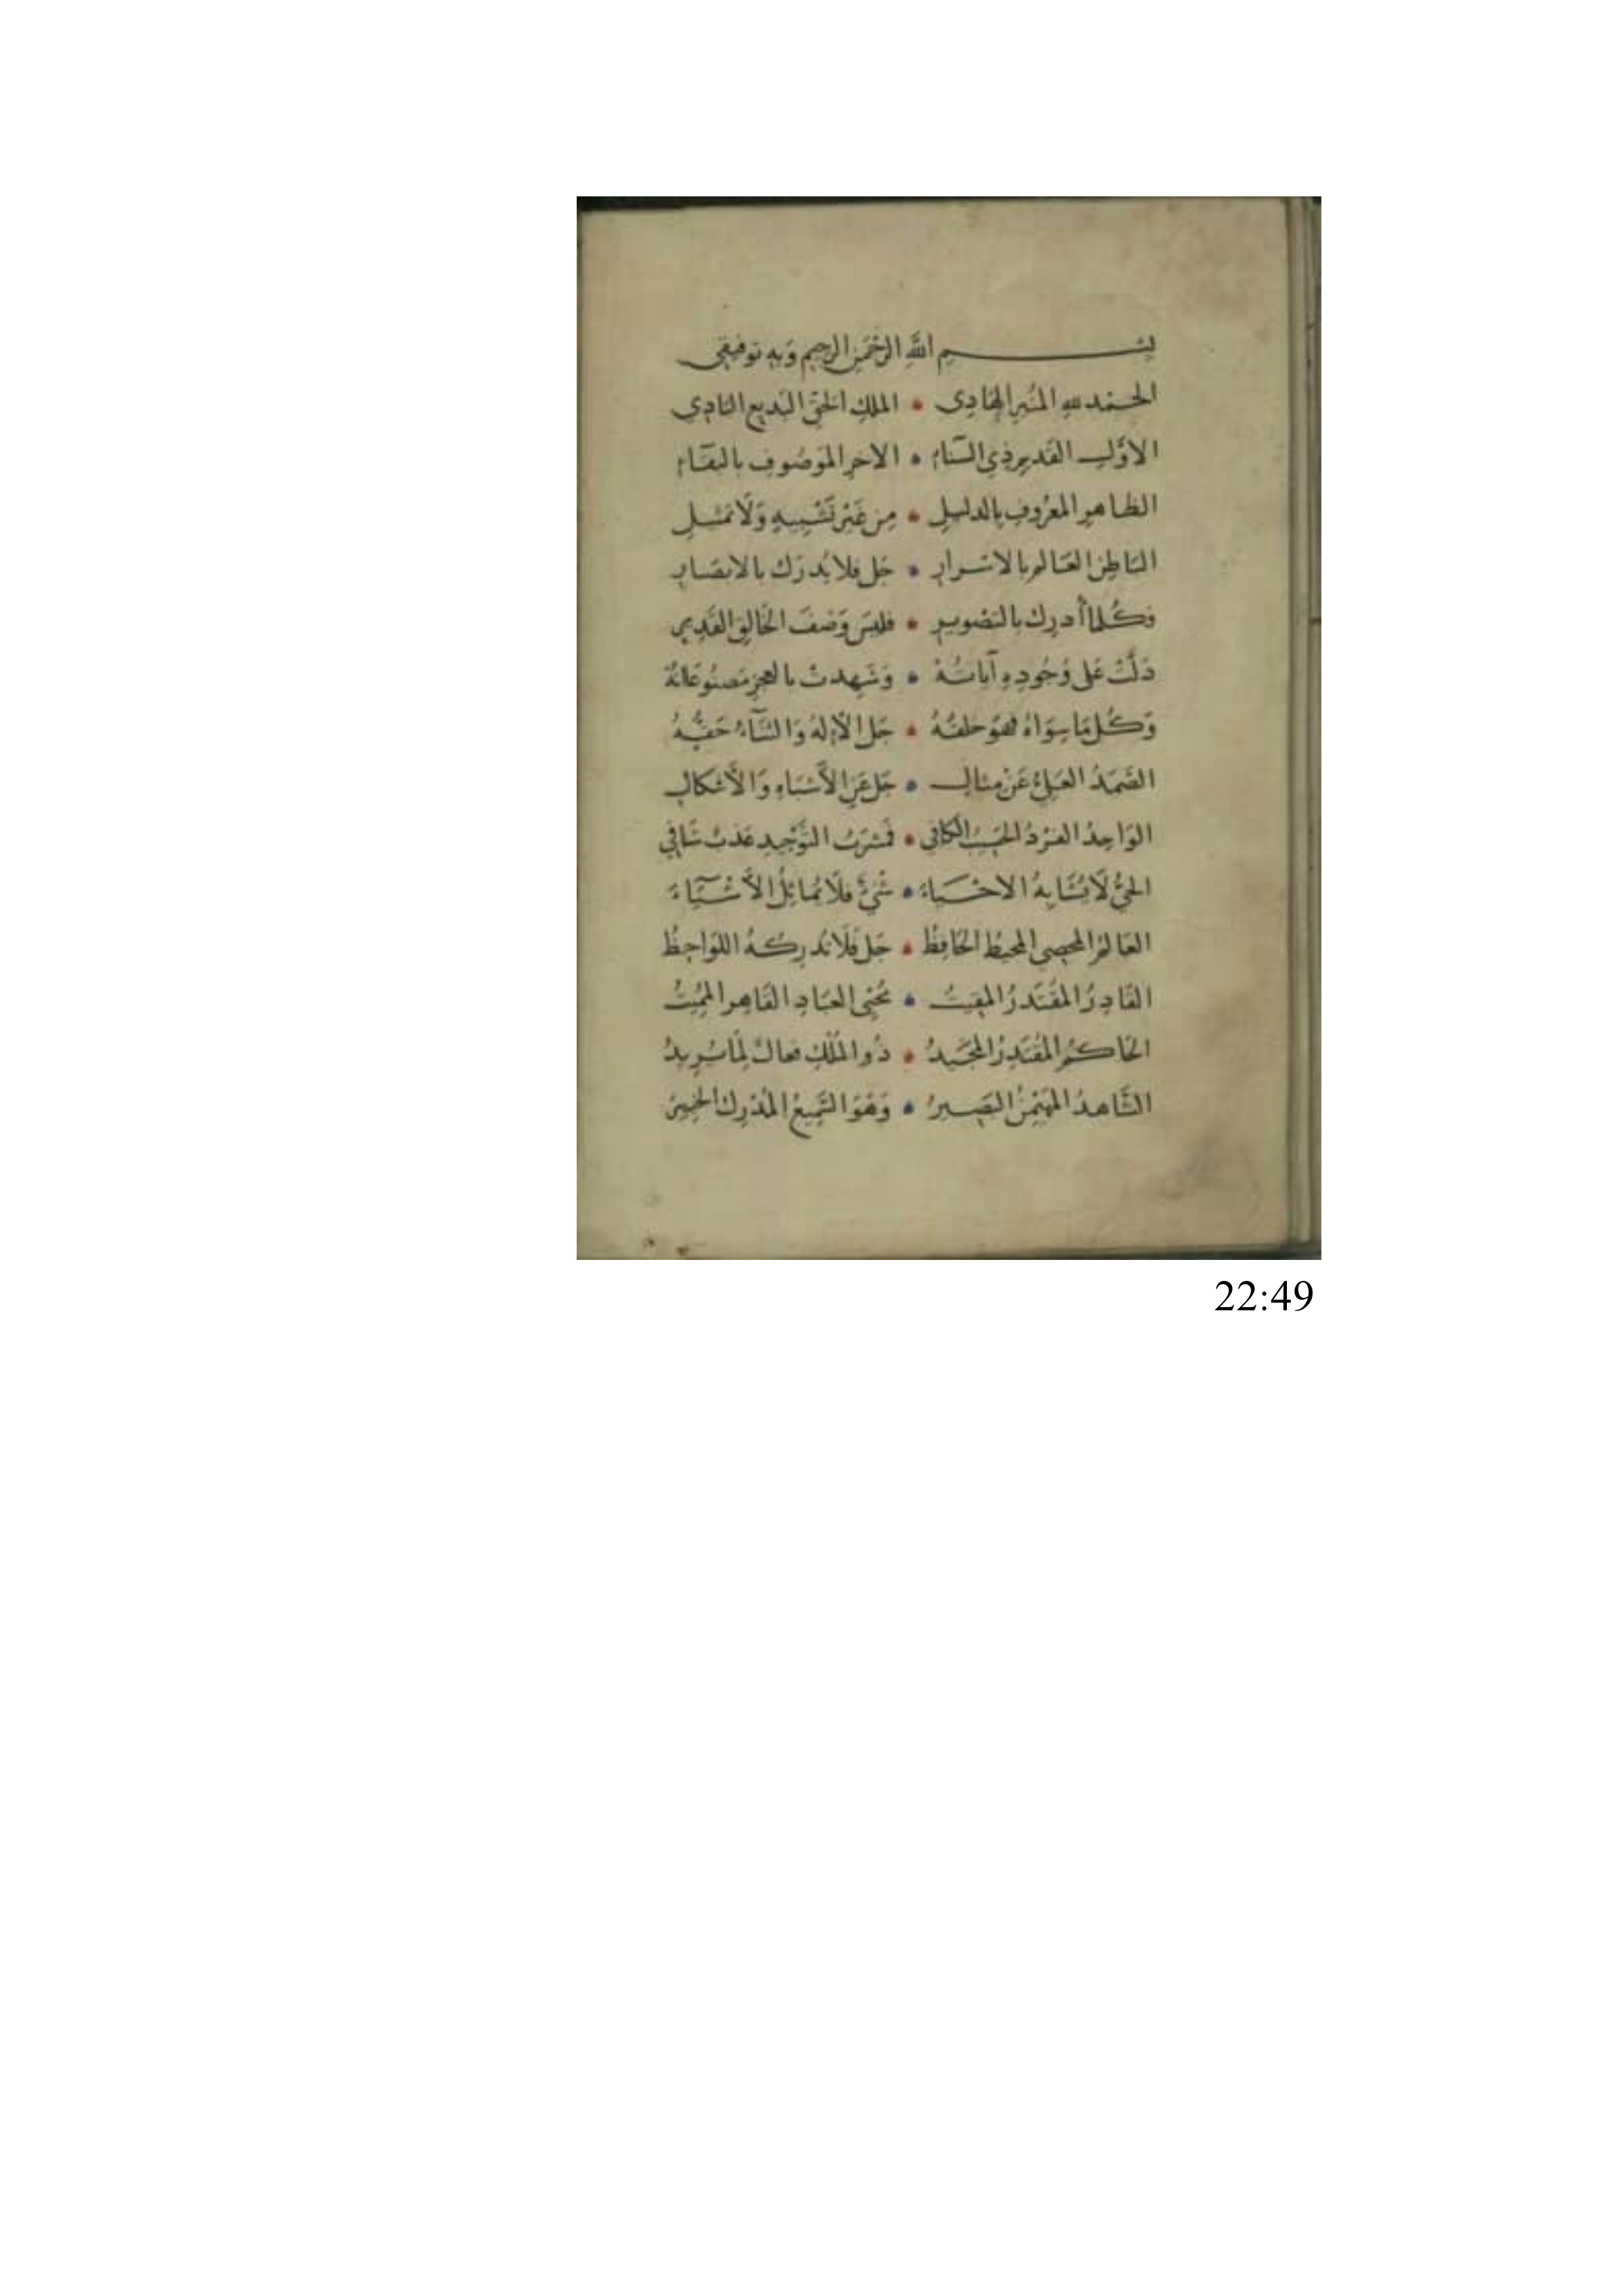 بسم الله الرحمن الرحيم وبه توفيقي
الحمد لله المنير الهادي • الملك الحق البديع البادي
الاوّل القديم ذي السّناء • الاخر الموصوف بالبقاء
الظاهر المعروف بالدليل • من غير تشبيه ولا تمثيل
الباطن العالم بالاسرار • جل فلا يدرك بالابصار
وكلما أدرك بالتصوير • فليس وصف الخالق القدير
دلّت على وجوده آياته • وشهدت بالعجز مصنوعاته
وكل ما سواه فهو خلقه • جل الإله والثناء حقه
الصّمد العليّ عن مثال • جل عن الأشباه والأشكال
الواحد الفرد الحسيب الكافي • فمشرب التوحيد عذب شافي
الحيّ لا يشابه الاحياء • شيء فلا يماثل الأشياء
العالم المحصي المحيط الحافظ • جل فلا تدركه اللواحظ
القادر المقتدر المقيت • محيي العباد القاهر المميت
الحاكم المقتدر المجيد • ذو الملك فعال لما يريد
الشاهد المهيمن البصير • وهو السميع المدرك الخبير
22:49